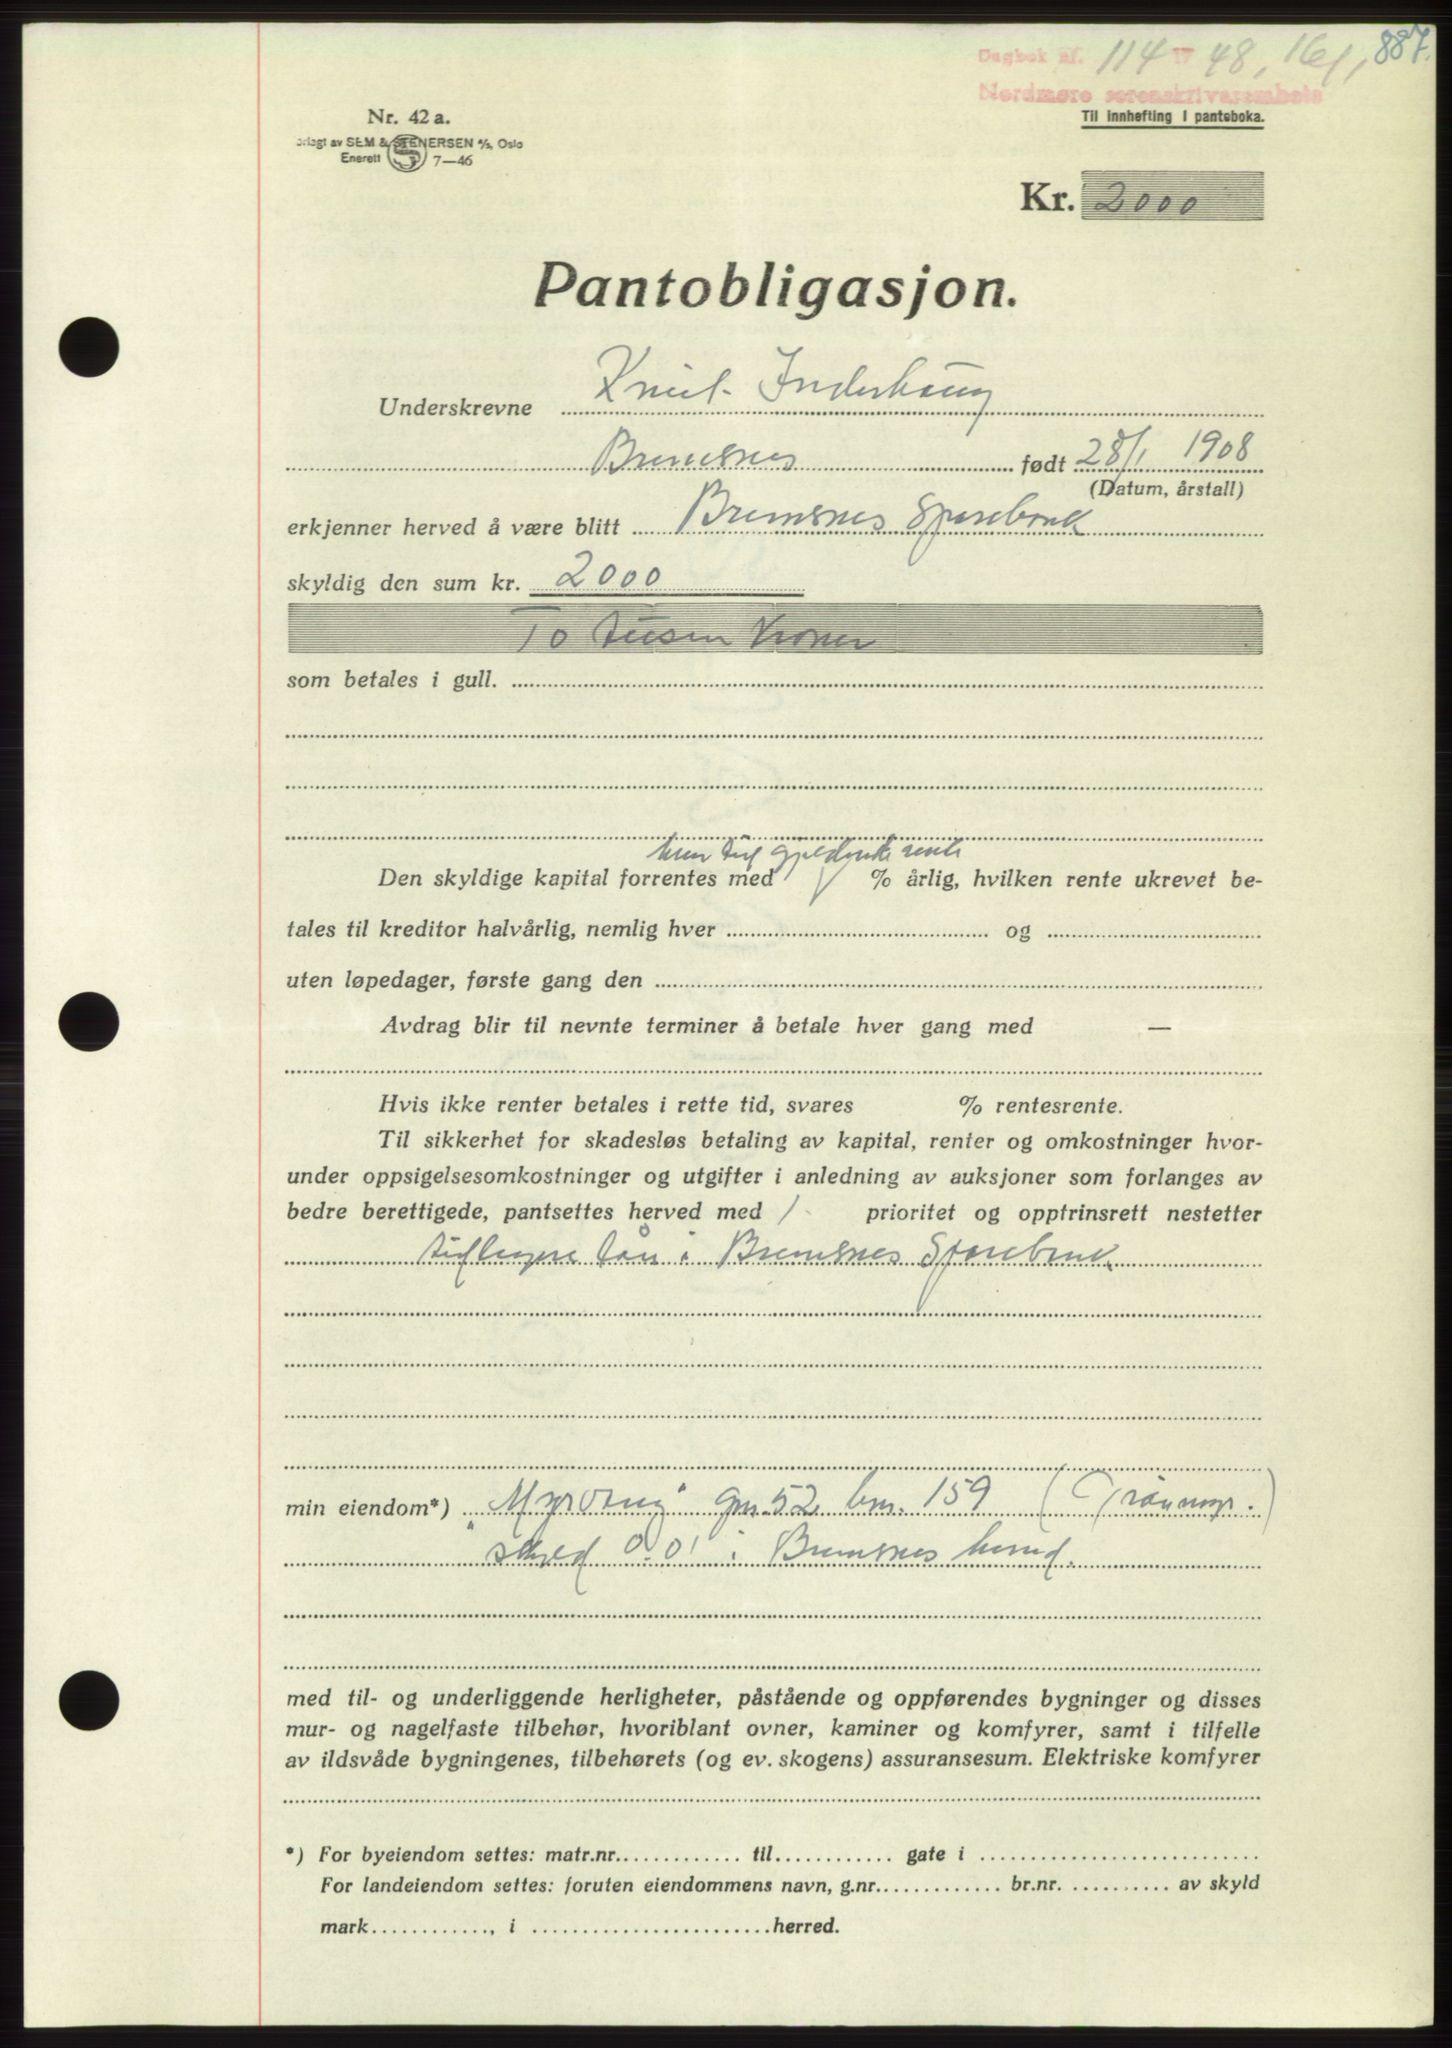 887.
Dagbok nr. 114 17 48, 16/1,
Nordmøre sorenskriverembete
Til innhefting i panteboka.
Nr. 42 a.
orlagt av SEM & STENERSEN A/S, Oslo
Enerett 7—46
Kr. 2000
Pantobligasjon.
Underskrevne Knut Inderhaug
Bremsnes født 28/1 1908
(Datum, årstall)
erkjenner herved å være blitt Bremsnes Sparebank
skyldig den sum kr. 2000
To tusen kroner
som betales i gull.
hver tid gjeldende rente
Den skyldige kapital forrentes med % årlig, hvilken rente ukrevet be-
tales til kreditor halvårlig, nemlig hver og
uten løpedager, første gang den
Avdrag blir til nevnte terminer å betale hver gang med —
Hvis ikke renter betales i rette tid, svares % rentesrente.
Til sikkerhet for skadesløs betaling av kapital, renter og omkostninger hvor-
under oppsigelsesomkostninger og utgifter i anledning av auksjoner som forlanges av
bedre berettigede, pantsettes herved med 1. prioritet og opptrinsrett nestetter
tidligere lån i Bremsnes Sparebank
min eiendom*) „Myrvang" gnr. 52 bnr. 159 (Grønmyr.)
skyld 0.01 i Bremsnes herred.
med til- og underliggende herligheter, påstående og oppførendes bygninger og disses
mur- og nagelfaste tilbehør, hvoriblant ovner, kaminer og komfyrer, samt i tilfelle
av ildsvåde bygningenes, tilbehørets (og ev. skogens) assuransesum. Elektriske komfyrer
*) For byeiendom settes: matr.nr. til gate i
For landeiendom settes: foruten eiendommens navn, g.nr. br.nr. av skyld
mark , i herred.